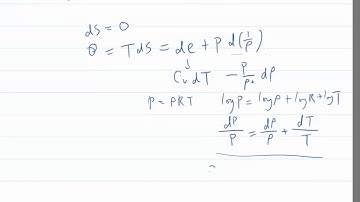 dS = 0
Q = T dS = de + P d(1/ρ)
↓
Cv dT - P/ρ² dρ
P = ρRT log P = log ρ + log R + log T
dP/P = dρ/ρ + dT/T